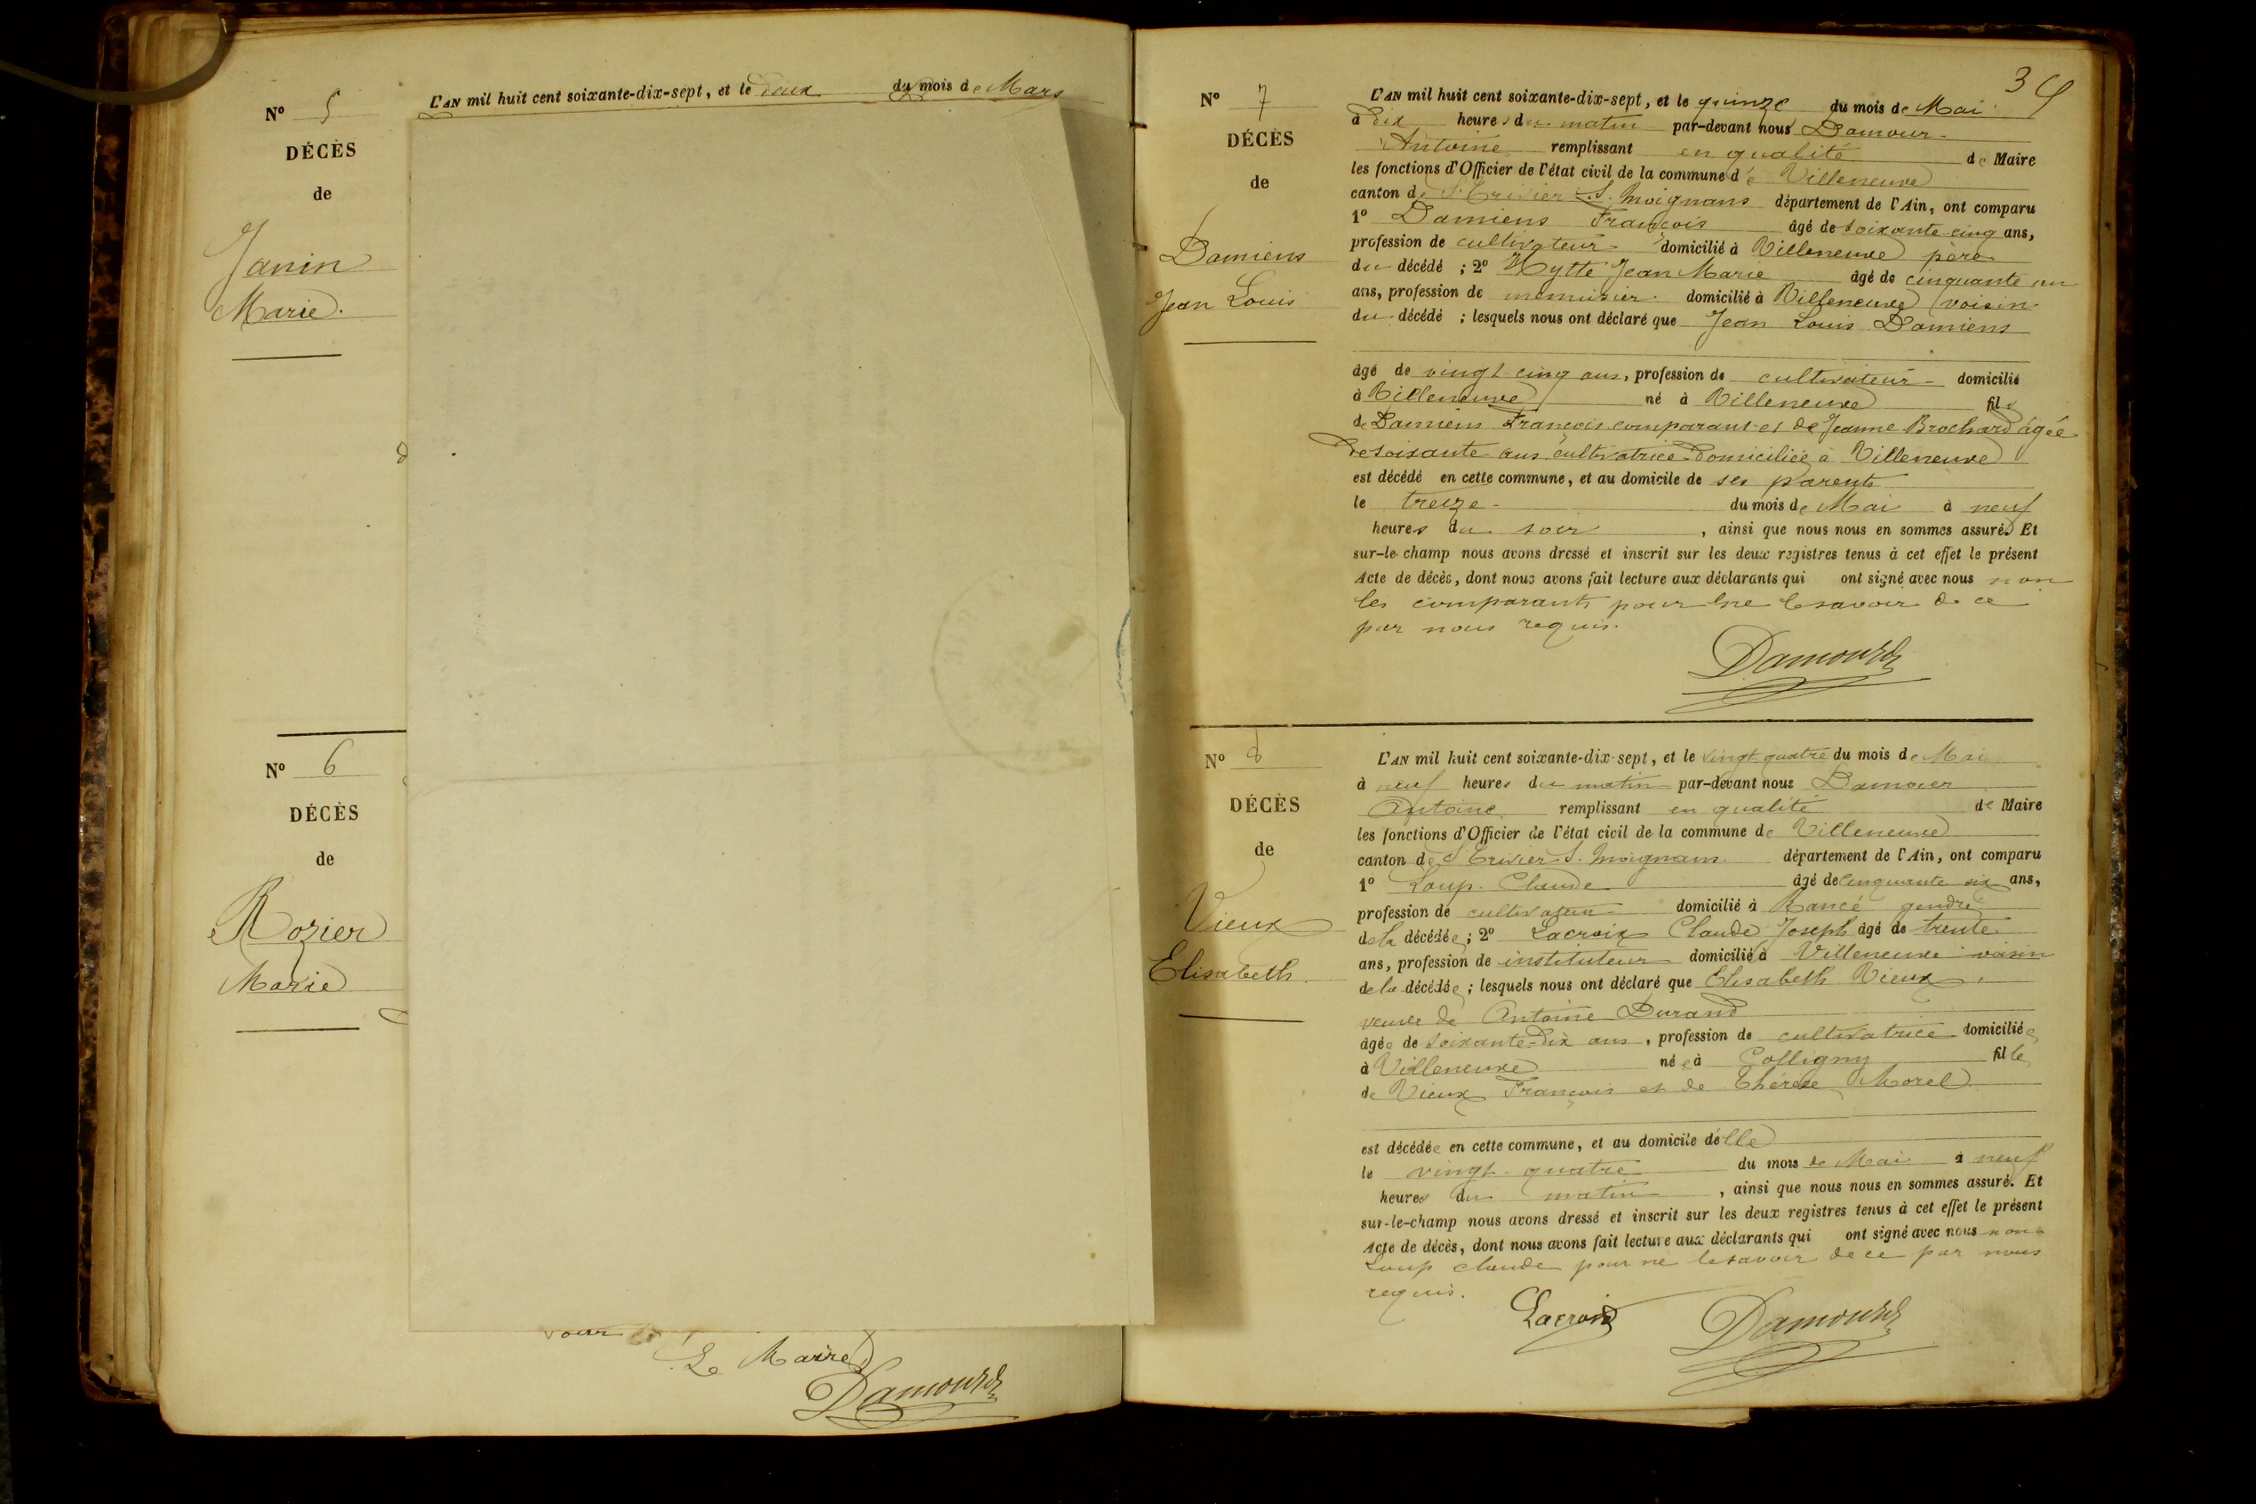 N° 5
DÉCÈS
de
Janin
Marie.
L'AN mil huit cent soixante-dix-sept, et le deux du mois de Mars
N° 6
DÉCÈS
de
Rozier
Marie
Le Maire
Damour
39
N° 7
DÉCÈS
de
Damiens
Jean Louis
L'AN mil huit cent soixante-dix-sept, et le quinze du mois de Mai
à dix heures du matin par-devant nous Damour
Antoine remplissant en qualité de Maire
les fonctions d'Officier de l'état civil de la commune de Villeneuve
canton de St Trivier S. Moignans département de l'Ain, ont comparu
1° Damiens François âgé de soixante cinq ans,
profession de cultivateur domicilié à Villeneuve père
du décédé ; 2° Hytte Jean Marie âgé de cinquante un
ans, profession de menuisier domicilié à Villeneuve voisin
du décédé ; lesquels nous ont déclaré que Jean Louis Damiens
âgé de vingt cinq ans, profession de cultivateur domicilié
à Villeneuve né à Villeneuve fils
de Damiens François comparant et de Jeanne Brochard âgée
de soixante ans cultivatrice domiciliée à Villeneuve
est décédé en cette commune, et au domicile de ses parents
le treize du mois de Mai à neuf
heures du soir, ainsi que nous nous en sommes assuré. Et
sur-le-champ nous avons dressé et inscrit sur les deux registres tenus à cet effet le présent
Acte de décès, dont nous avons fait lecture aux déclarants qui ont signé avec nous non
les comparants pour ne le savoir de ce
par nous requis.
Damour
N° 8
DÉCÈS
de
Vieux
Elisabeth.
L'AN mil huit cent soixante-dix-sept, et le vingt quatre du mois de Mai
à neuf heures du matin par-devant nous Damour
Antoine remplissant en qualité de Maire
les fonctions d'Officier de l'état civil de la commune de Villeneuve
canton de St Trivier S. Moignans département de l'Ain, ont comparu
1° Loup Claude âgé de cinquante six ans,
profession de cultivateur domicilié à Rancé gendre
de la décédée ; 2° Lacroix Claude Joseph âgé de trente
ans, profession de instituteur domicilié à Villeneuve voisin
de la décédée ; lesquels nous ont déclaré que Elisabeth Vieux
veuve de Antoine Durand
âgée de soixante-dix ans, profession de cultivatrice domiciliée
à Villeneuve née à Colligny fille
de Vieux François et de Thérèse Morel
est décédée en cette commune, et au domicile d'elle
le vingt-quatre du mois de Mai à neuf
heures du matin, ainsi que nous nous en sommes assuré. Et
sur-le-champ nous avons dressé et inscrit sur les deux registres tenus à cet effet le présent
Acte de décès, dont nous avons fait lecture aux déclarants qui ont signé avec nous non
Loup Claude pour ne le savoir de ce par nous
requis.
Lacroix Damour